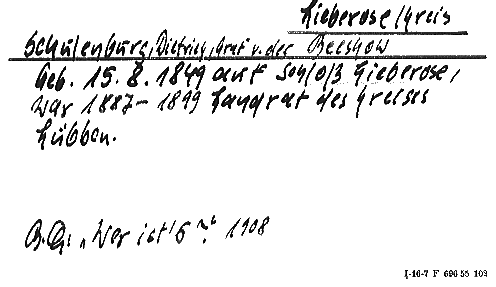 Lieberose/Kreis
Schulenburg, Dietrich, Graf v. der Beeskow
Geb. 15. 8. 1849 auf Schloß Lieberose,
War 1887-1899 Landrat des Kreises
Lübben.
B.Qu. „Wer ist's?" 1908
I-16-7 F 696 55 103